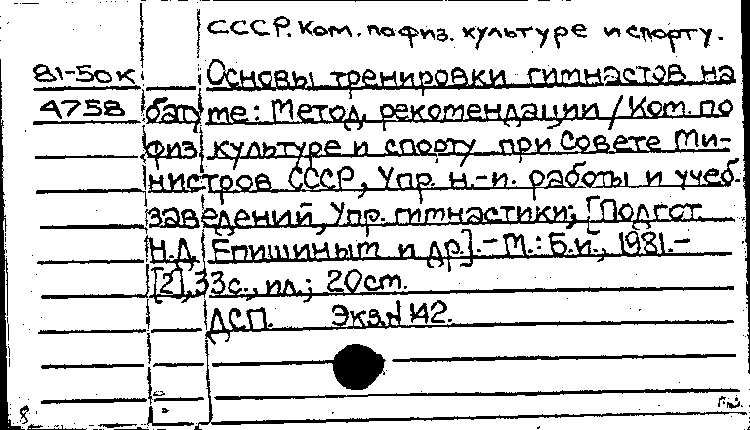 СССР. Ком. по физ. культуре и спорту.
81-50к Основы тренировки гимнастов на
4758 батуте: Метод. рекомендации / Ком. по
физ. культуре и спорту при Совете Ми-
нистров СССР, Упр. н.-и. работы и учеб.
заведений, Упр. гимнастики; [Подгот.
Н.Д. Епишиным и др.].- М.: Б.и., 1981.-
[2], 33с., ил.; 20см.
ДСП. Экз.N 142.
8